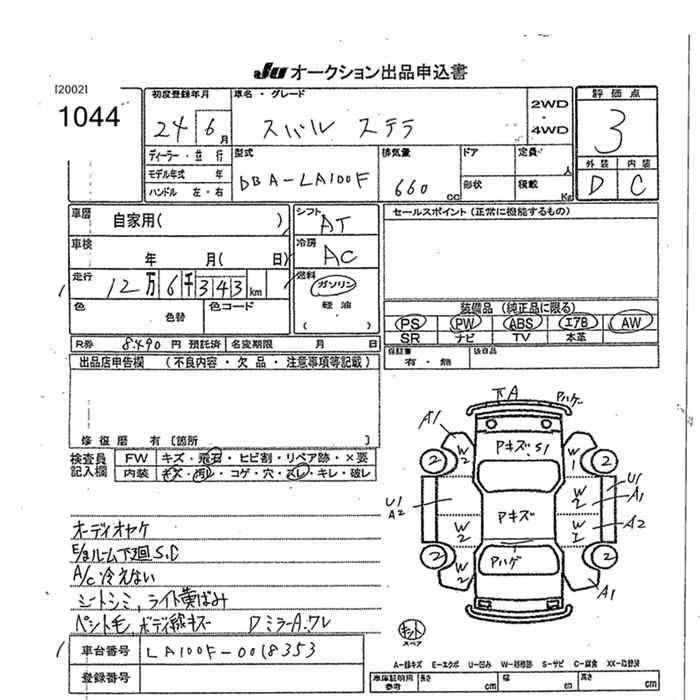 JU オークション出品申込書
[2002]
1044
初度登録年月
24 6月
車名・グレード
スバル ステラ
2WD
・
4WD
評価点
3
外装 内装
D C
ディーラー・並行
モデル年式 年
ハンドル 左・右
型式
DBA-LA100F
排気量
660 cc
ドア
形状
定員 人
積載 Kg
車歴
自家用( )
車検
年 月( 日)
走行
12万6千343km
色
色替
色コード
シフト
AT
冷房
AC
燃料
ガソリン
軽油
( )
セールスポイント (正常に機能するもの)
装備品 (純正品に限る)
PS PW ABS エアB AW
SR ナビ TV 本革
保証書
有・無
後日品
R券 8490円 預託済 名変期限 月 日
出品店申告欄 (不良内容・欠品・注意事項等記載)
修復歴 有 [箇所 ]
検査員
記入欄
FW キズ・飛石・ヒビ割・リペア跡・×要
内装 キズ・汚レ・コゲ・穴・スレ・キレ・破レ
オーディオヤケ
E/gルーム下廻S.C
A/C冷えない
シートシミ,ライト黄ばみ
ペット毛,ボディ線キズ Dミラー A.ワレ
車台番号 LA100F-0018353
登録番号
下A Pハゲ
A1
Aキズ.S1
W2 W1
2 2
U1
A2
U1
A1
W2
Aキズ
W2 W1
A2
2 2
W2
Pハゲ
A1
キット
スペア
A-線キズ E-エクボ U-凹み W-補修跡 S-サビ C-腐食 XX-取替済
車庫証明用
参考
長さ cm 幅 cm 高さ cm